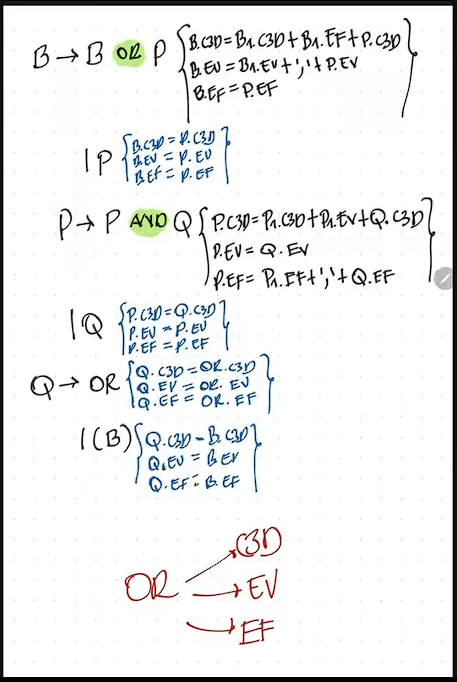 B → B OR P { B.C3D = B1.C3D + B1.EF + P.C3D
B.EV = B1.EV + ',' + P.EV
B.EF = P.EF }
| P { B.C3D = P.C3D
B.EV = P.EV
B.EF = P.EF }
P → P AND Q { P.C3D = P1.C3D + P1.EV + Q.C3D
P.EV = Q.EV
P.EF = P1.EF + ',' + Q.EF }
| Q { P.C3D = Q.C3D
P.EV = P.EV
P.EF = P.EF }
Q → OR { Q.C3D = OR.C3D
Q.EV = OR.EV
Q.EF = OR.EF }
| (B) { Q.C3D = B.C3D
Q.EV = B.EV
Q.EF = B.EF }
C3D
OR → EV
EF